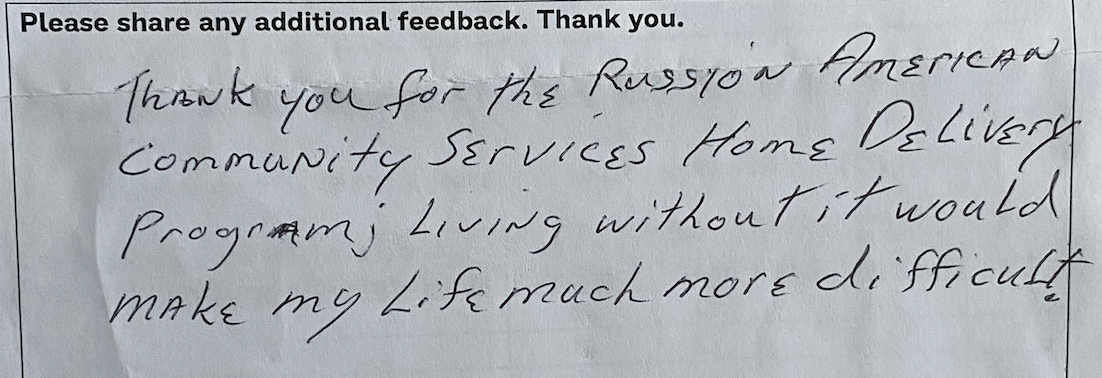 Please share any additional feedback. Thank you.
Thank you for the Russion American
Community Services Home Delivery
Program; Living without it would
make my Life much more difficult!